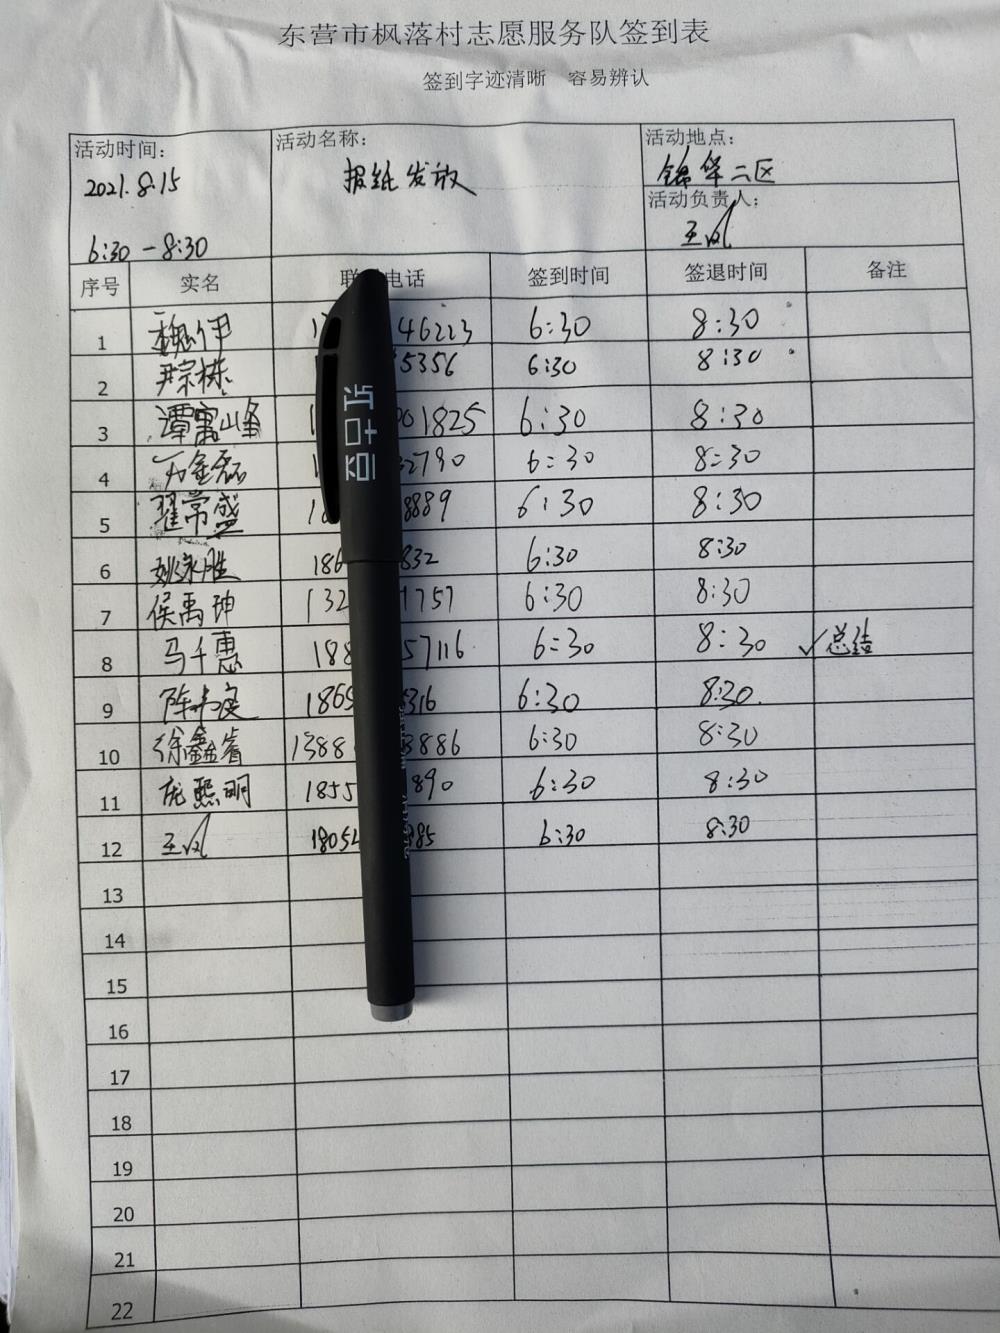 东营市枫落村志愿服务队签到表
签到字迹清晰 容易辨认
活动时间: 活动名称: 活动地点:
2021.8.15 报纸发放 锦华二区
活动负责人:
6:30-8:30 王凤
序号 实名 联 电话 签到时间 签退时间 备注
1 魏伊 1 46223 6:30 8:30
2 尹宗栋 5356 6:30 8:30
3 谭富山峰 1 01825 6:30 8:30
4 万金磊 1 2790 6:30 8:30
5 翟常盛 18 8889 6:30 8:30
6 姚永胜 186 832 6:30 8:30
7 侯禹珅 132 1757 6:30 8:30
8 马千惠 188 57116 6:30 8:30 ✓总结
9 陈 庭 1865 316 6:30 8:30
10 徐鑫睿 1388 8886 6:30 8:30
11 庞熙明 1855 890 6:30 8:30
12 王凤 18054 985 6:30 8:30
13
14
15
16
17
18
19
20
21
22